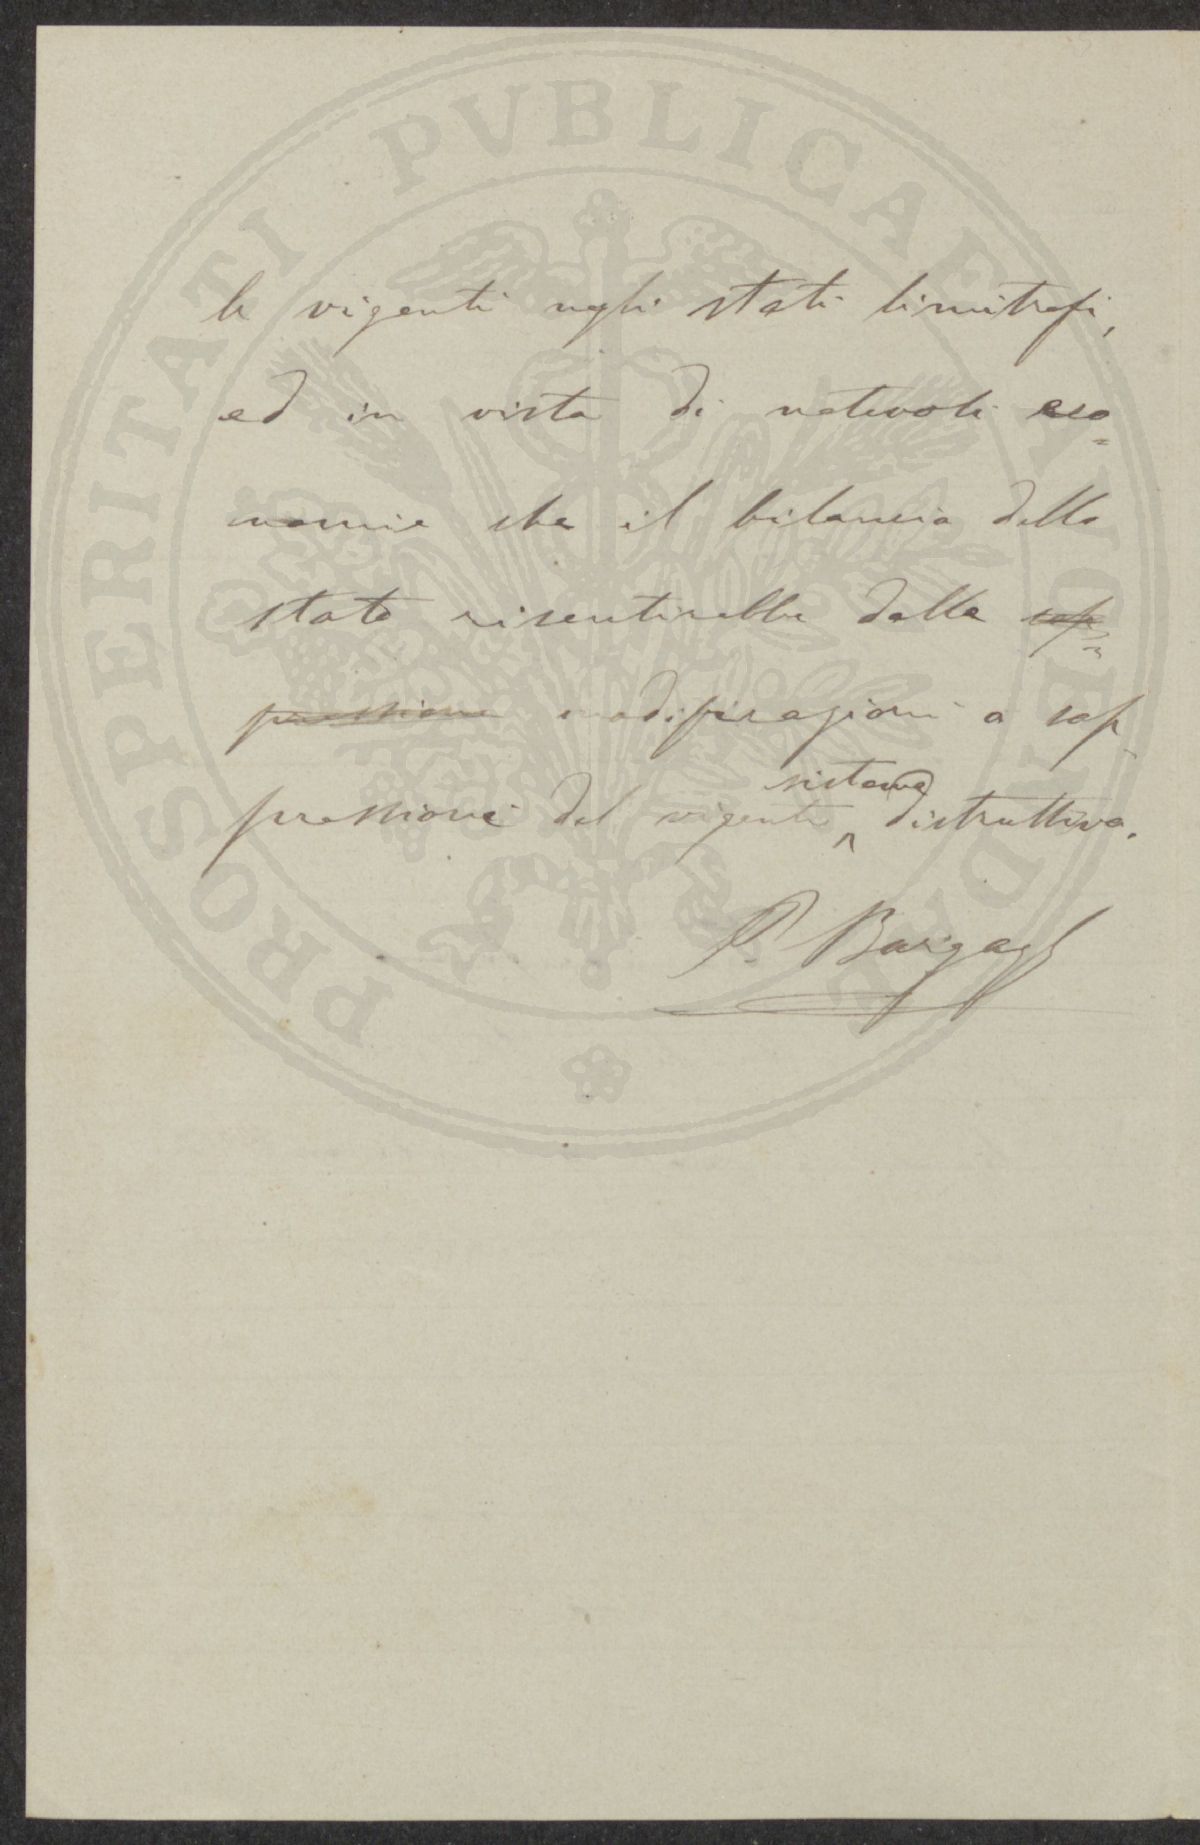 PROSPERITATI PVBLICAE AVGENDAE
le vigenti negli stati limitrofi,
ed in vista di notevoli eco=
nomie che il bilancio dello
stato risentirebbe dalla sop=
pressione modificazioni o sop-
pressione del vigente sistema distruttivo.
P. Bargagli